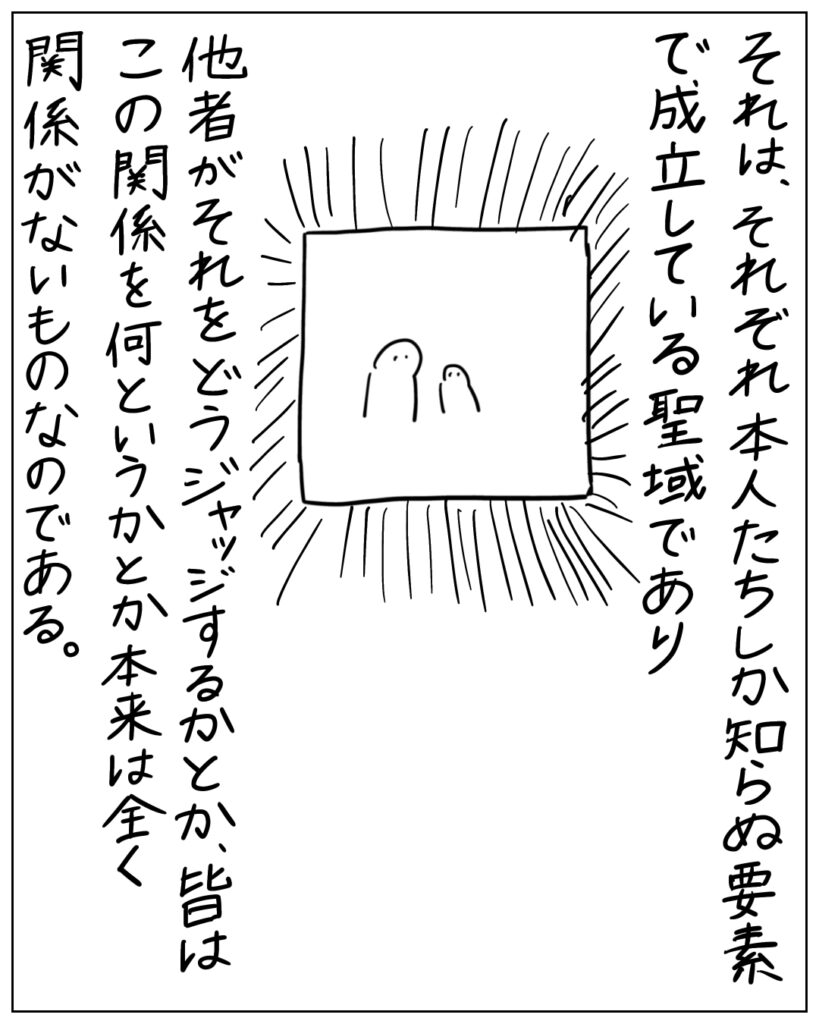 それは、それぞれ本人たちしか知らぬ要素
で成立している聖域であり
他者がそれをどうジャッジするかとか、皆は
この関係を何というかとか本来は全く
関係がないものなのである。